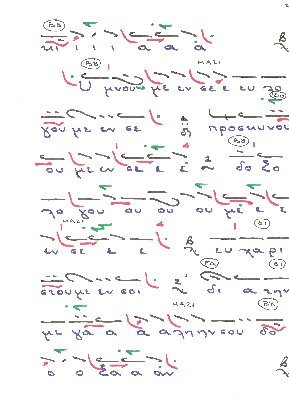 κι ι ι ι α α α
ΜΑΖΙ
Υ μνου με εν σε ε ευ λο
γου με εν σε προσκυνου
ου με εν σε ε ε δο ξο
λο γου ου ου ου με ε ε
ΜΑΖΙ
εν σε ε ε ευ χαρι
στου με εν σοι δι α την
ΜΑΖΙ
με γα α α σου δο
ο ο ξα α αν